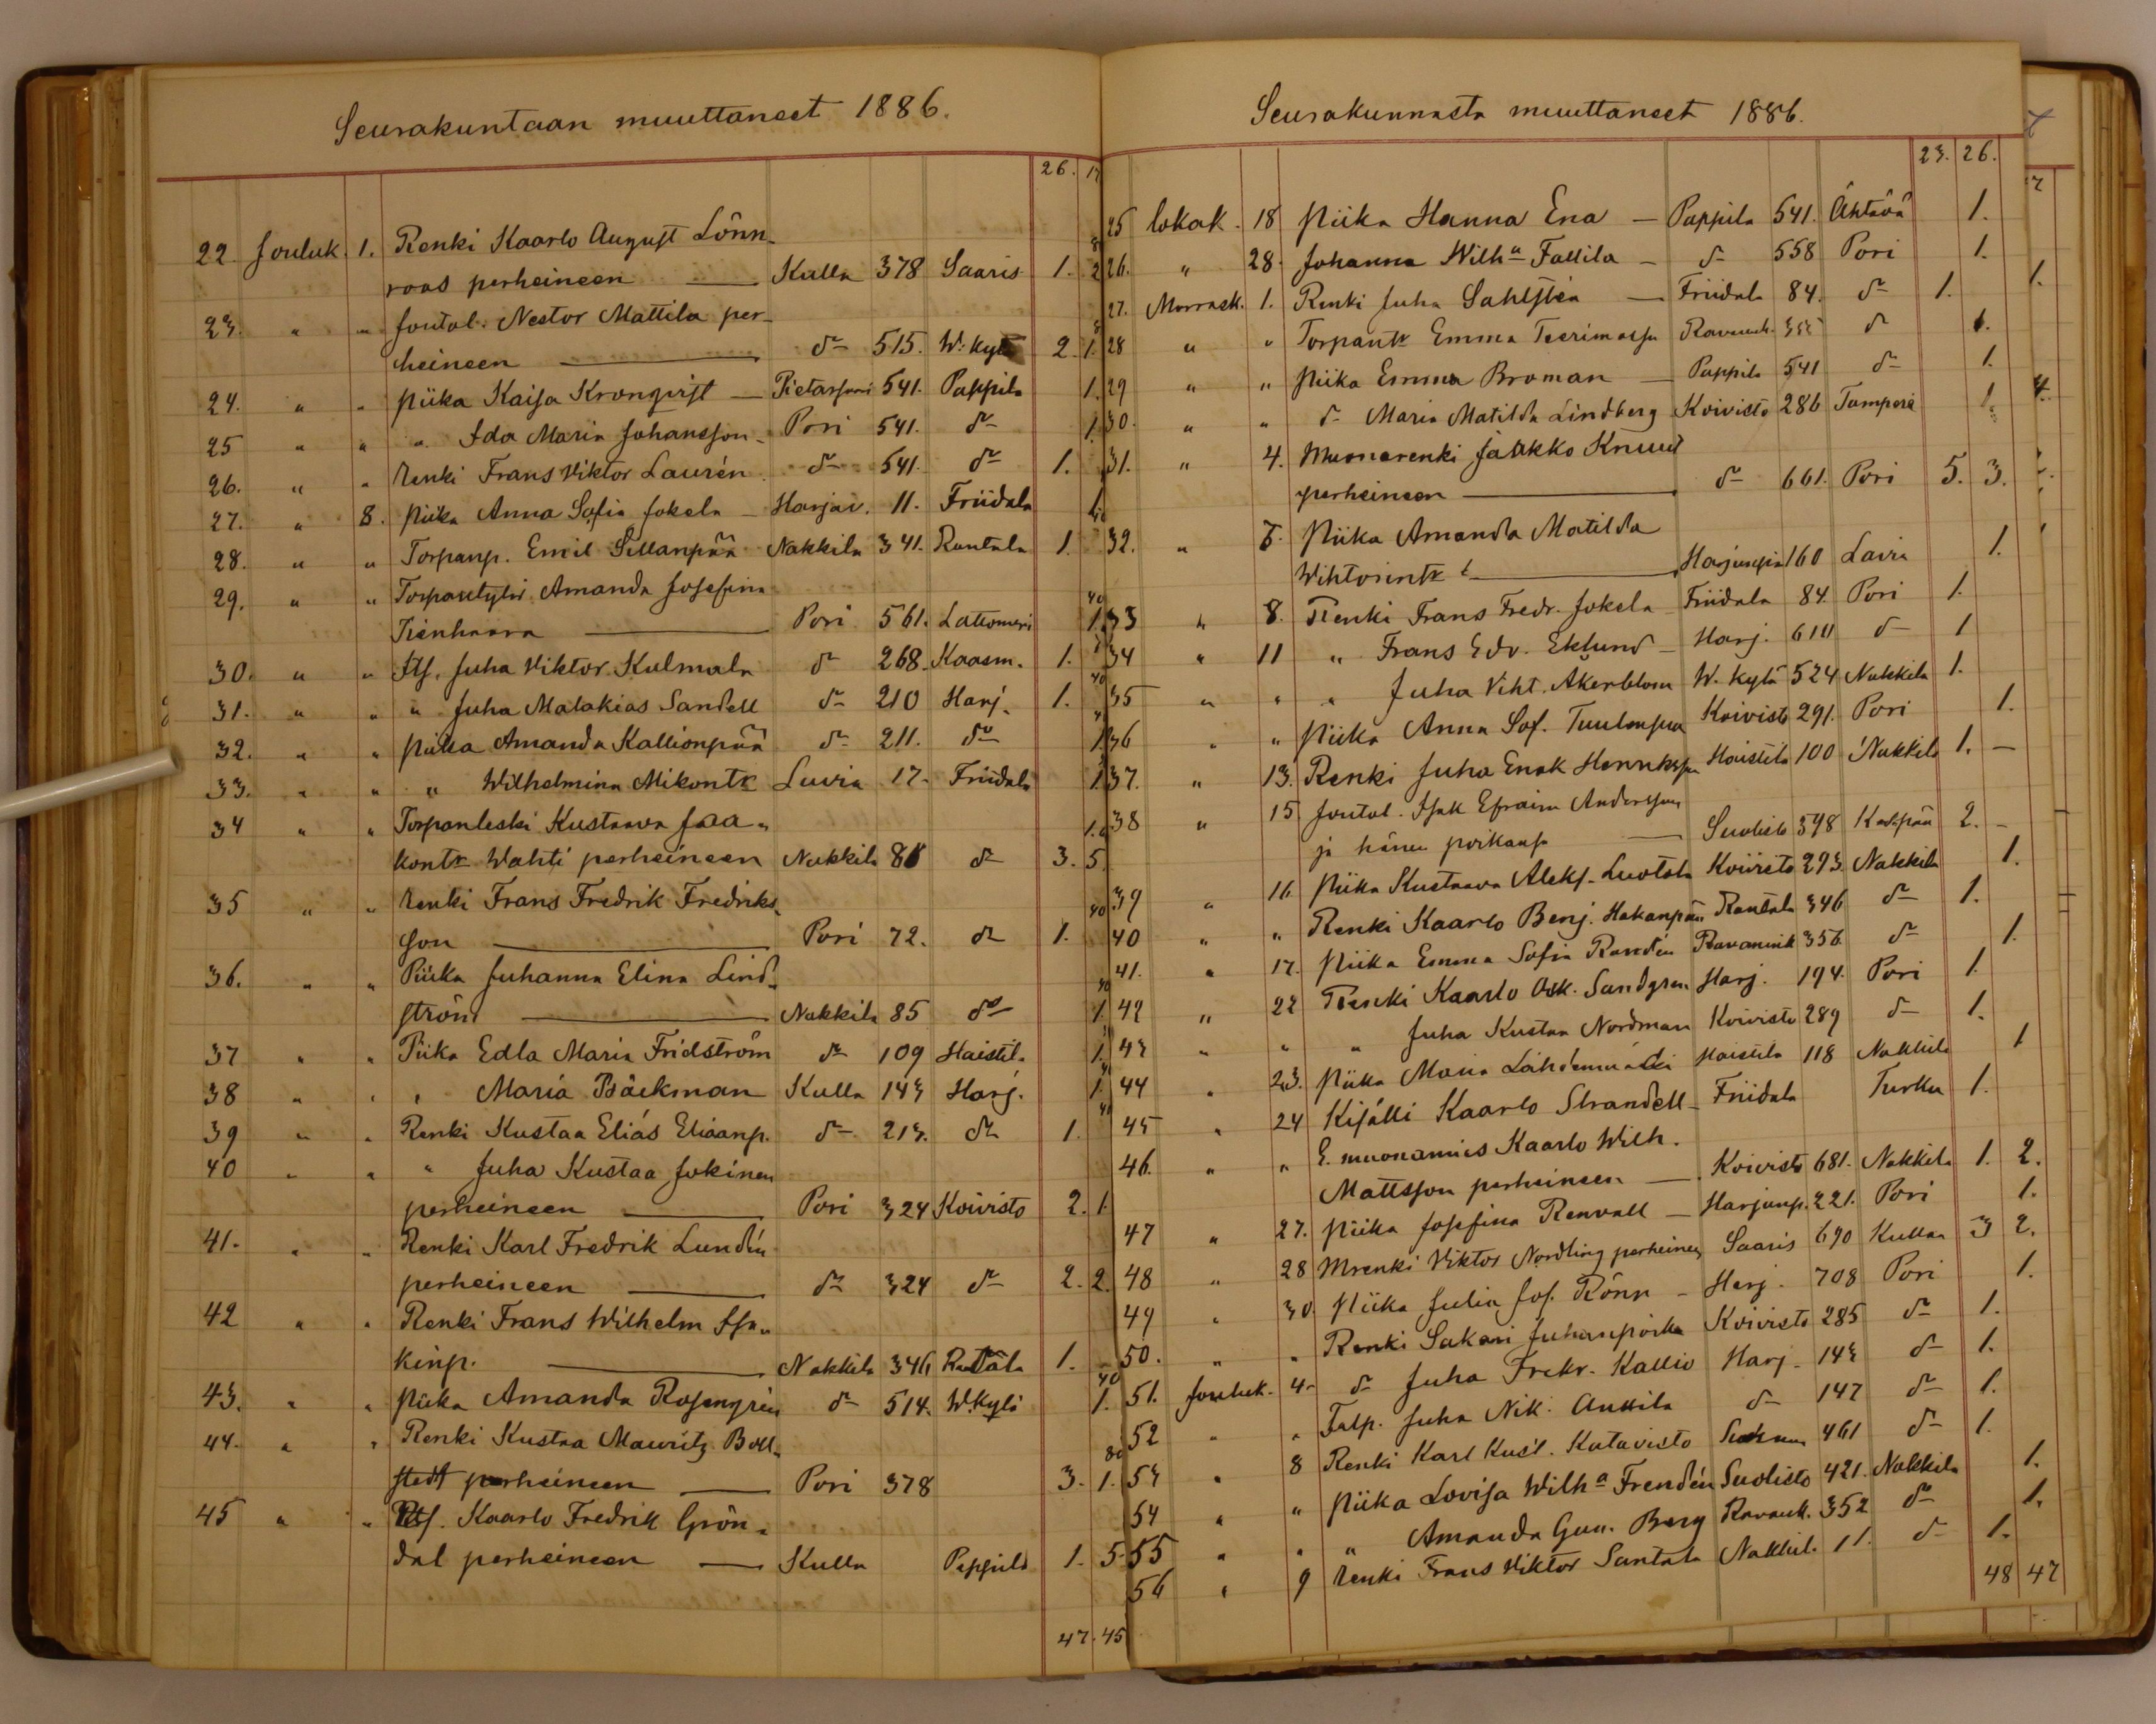 Seurakuntaan muuttaneet 1886.
26. 17
22. Jouluk. 1. Renki Kaarlo August Lönn-
roos perheineen — Kulla 378 Saaris 1. 2
23. " " Joutol. Nestor Mattila per-
heineen — d:o 515. W:kylä 2. 1.
24. " " Piika Kaisa Kronqvist — Pietarsaari 541. Pappila 1.
25 " " " Ida Maria Johansson - Pori 541. d:o 1.
26. " " Renki Frans Viktor Laurén d:o 541. d:o 1.
27. " 8. Piika Anna Sofia Jokela - Harjav. 11. Friidala 1.
28. " " Torpanp. Emil Sillanpää Nakkila 341. Rantala 1.
29. " " Torpantytär Amanda Josefina
Tienhaara — Pori 561. Lattomeri 1.
30. " " Its. Juha Viktor Kulmala d:o 268. Kaasm. 1.
31. " " " Juha Malakias Sandell d:o 210 Harj. 1.
32. " " Piika Amanda Kallionpää d:o 211. d:o 1.
33. " " " Wilhelmina Mikontr Luvia 17. Friidala 1.
34 " " Torpanleski Kustaava Jaa-
kontr Wahti perheineen Nakkila 88 d:o 3. 5.
35 " " Renki Frans Fredrik Fredriks-
son — Pori 72. d:o 1.
36. " " Piika Juhanna Elina Lind-
ström — Nakkila 85 d:o 1.
37 " " Piika Edla Maria Fridström d:o 109 Haistila 1.
38 " " " Maria Bäckman Kulla 143 Harj. 1.
39 " " Renki Kustaa Eliás Eliaanp. d:o 213. d:o 1.
40 " " " Juha Kustaa Jokinen
perheineen — Pori 324 Koivisto 2. 1.
41. " " Renki Karl Fredrik Lundén
perheineen — d:o 324 d:o 2. 2.
42 " " Renki Frans Wilhelm Isa-
kinp. — Nakkila 346 Rantala 1.
43. " " Piika Amanda Rosengrén d:o 514. W.kylä 1.
44. " " Renki Kustaa Mauritz Boll-
stedt perheineen — Pori 378 3. 1.
45 " " Its. Kaarlo Fredrik Grön-
dal perheineen — Kulla Pappila 1. 5
47. 45
Seurakunnasta muuttaneet 1886.
23. 26.
25 lokak. 18 Piika Hanna Ena — Pappila 541. Ähtävä 1.
26. " 28. Johanna Wilh:a Fallila — d:o 558 Pori 1.
27. Marrask. 1. Renki Juha Sahlstén — Friidala 84. d:o 1.
28 " " Torpantr Emma Teerimassa Ravanik. 355 d:o 1.
29 " " Piika Emma Broman — Pappila 541 d:o 1.
30. " " d:o Maria Matilda Lindberg Koivisto 286 Tampere 1.
31. " 4. Muonarenki Jaakko Knuut
perheineen — d:o 661. Pori 5. 3.
32. " 6. Piika Amanda Matilda
Wihtorintr — Harjunpää 160 Lavia 1.
33 " 8. Renki Frans Fredr. Jokela Friidala 84. Pori 1.
34 " 11 " Frans Edv. Eklund — Harj. 611 d:o 1
35 " " " Juha Viht. Åkerblom W. kylä 524 Nakkila 1.
36 " " Piika Anna Sof. Tuulenpää Koivisto 291. Pori 1.
37. " 13. Renki Juha Enok Henrikss. Haistila 100 Nakkila 1. —
38 " 15 Joutol. Isak Efraim Andersson
ja hänen poikansa — Suolisto 398 Kaspää 2. —
39 " 16 Piika Kustaava Aleks. Luotola Koivisto 293. Nakkila 1.
40 " " Renki Kaarlo Benj. Hakanpää Rantala 346 d:o 1.
41. " 17. Piika Emma Sofia Randén Ravanink 356. d:o 1.
42 " 22 Renki Kaarlo Osk. Sandgren Harj. 194. Pori 1.
43 " " " Juha Kustaa Nordman Koivisto 289 d:o 1.
44 " 23. Piika Maria Lähdenmäki Haistila 118 Nakkila 1
45 " 24 Kisälli Kaarlo Strandell — Friidala Turku 1.
46. " " E. muonamies Kaarlo Wilh.
Mattsson perheineen — Koivisto 681. Nakkila 1. 2.
47 " 27. Piika Josefina Renvall — Harjunp. 221. Pori 1.
48 " 28 Mrenki Viktor Nordling perheinen Saaris 690 Kullaa 3 2.
49 " 30. Piika Julia Jos. Rönn — Harj. 708 Pori 1.
50. " " Renki Sakari Juhanpoika Koivisto 285 d:o 1.
51. Jouluk. 4. d:o Juha Frekr. Kallio Harj. 143 d:o 1.
52 " " Talp. Juha Nik. Anttila d:o 147 d:o 1.
53 " 8 Renki Karl Kust. Katavisto 461 d:o 1.
54 " " Piika Lovisa Wilh:a Frendén Suolisto 421. Nakkila 1.
55 " " " Amanda Gun. Berg Ravanik. 352 d:o 1.
56 " 9 Renki Frans Viktor Santala Nakkil. 11. d:o 1.
48 47